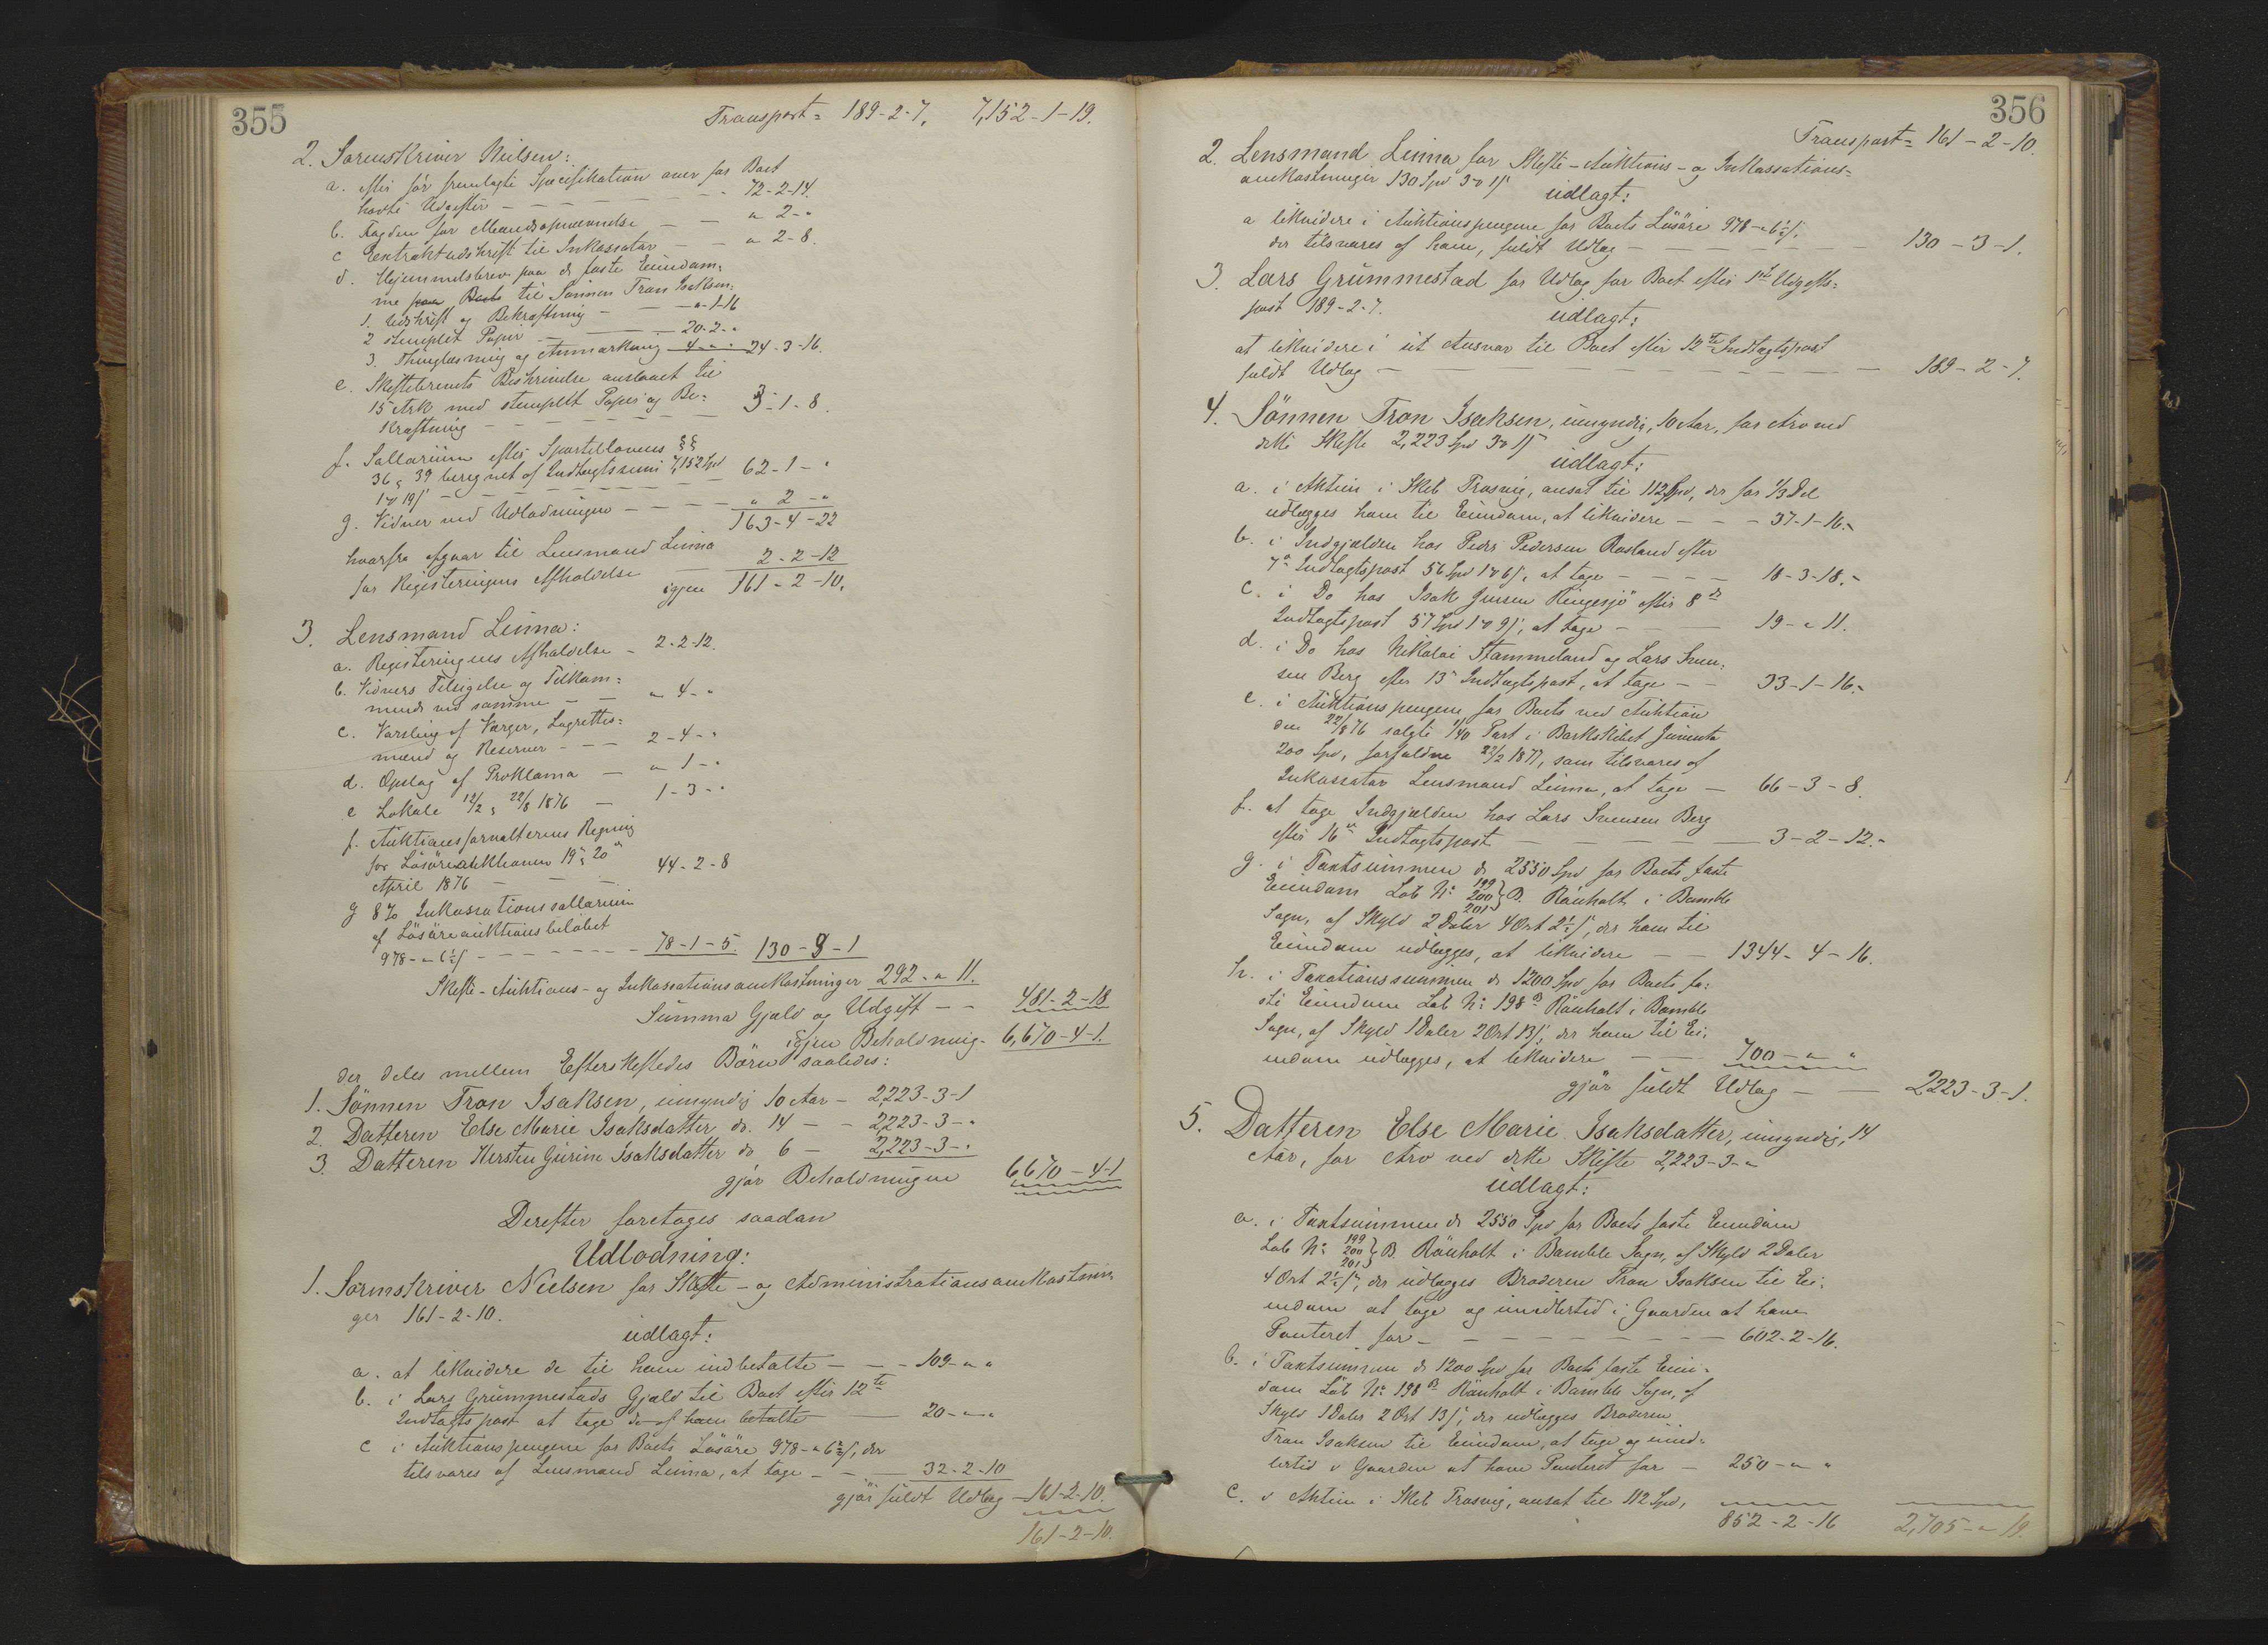 355
Transport = 189-2-7. 7,152-1-19.
2. Sorenskriver Nielsen:
a. efter før fremlagte Specifikation over for Boet
havte Udgifter — 72-2-14.
b. Fogden for — " 2-"
c Extraktudskrift til Inkassator — " 2-8.
d. Hjemmelsbrev paa de faste Eiendom=
me til Sønnen Tron Isaksen:
1. Udskrift og Bekræftning — " - 1-16
2 stemplet Papir — 20-2-"
3. Thinglæsning og Anmærkning 4-"-" 24-3-16.
e. Skiftebrevets Beskrivelse anslaaet til
15 Ark med stemplet Papir og Be=
kræftning — 3-1-8.
f. Sallarium efter Sportellovens §§
36 & 39 beregnet af Indtægtssum 7,152 Spd
1 ort 19 ß — 62-1-"
g. Vidner ved Udlodningen — " 2-"
163-4-22
hvorfra afgaar til Lensmand Linna
for Registeringens Afholdelse — 2-2-12
igjen 161-2-10.
3. Lensmand Linna:
a. Registeringens Afholdelse — 2-2-12.
b. Vidners Tilsigelse og Tilkom=
mende ved samme — " 4-"
c. Varsling af Værger, Lagrettes=
mænd og — 2-4-"
d. Opslag af Proklama — " 1-"
e Lokale 12/2 & 22/8 1876 — 1-3-"
f. Auktionsforvalterens Regning
for Løsøreauktionen 19de & 20de
April 1876 — 44-2-8
g 8% Inkassationssallarium
af Løsøreauktionsbeløbet
978-"-6½ ß — 78-1-5. 130-3-1
Skifte-Auktions- og Inkassationsomkostninger 292-"-11.
Summa Gjæld og Udgift — 481-2-18
igjen Beholdning - 6,670-4-1.
der deles mellem Efterskiftedes Børn saaledes:
1. Sønnen Tron Isaksen, umyndig 10 Aar — 2,223-3-1
2. Datteren Else Marie Isaksdatter do. 14 — 2,223-3-"
3. Datteren Kersten Gurine Isaksdatter do 6 — 2,223-3-"
gjør Beholdningen 6,670-4-1
Derefter foretages saadan
Udlodning:
1. Sorenskriver Nielsen for Skifte- og Administrationsomkostnin=
ger 161-2-10.
udlagt:
a. at likvidere de til ham indbetalte — 109-"-"
b. i Lars Grummestads Gjæld til Boet efter 12te
Indtægtspost at tage de af ham betalte 20-"-"
c i Auktionspengene for Boets Løsøre 978-"-6½ ß, der
tilsvares af Lensmand Linna, at tage — 32-2-10
gjør fuldt Udlæg — 161-2-10.
161-2-10.
356
Transport = 161-2-10.
2. Lensmand Linna for Skifte-Auktions- og Inkassations=
omkostninger 130 Spd 3 ort 1 ß
udlagt:
a likvidere i Auktionspengene for Boets Løsøre 978-"-6½ ß,
der tilsvares af ham, fuldt Udlæg — 130-3-1.
3. Lars Grummestad for Udlæg for Boet efter 1ste Udgifts=
post 189-2-7.
udlagt:
at likvidere i sit Ansvar til Boet efter 12te Indtægtspost
fuldt Udlæg — 189-2-7.
4. Sønnen Tron Isaksen, umyndig, 10 Aar, for Arv ved
dette Skifte 2,223 Spd 3 ort 1 ß
udlagt:
a. i Aktien i Skib Trosvig, ansat til 112 Spd, der for 1/3 Del
udlægges ham til Eiendom, at likvidere — 37-1-16.
b. i Indgjælden hos Peder Pedersen Rosland efter
7de Indtægtspost 56 Spd 1 ort 6 ß, at tage — 18-3-18.
c. i Do hos Isak Jensen Ringesjø efter 8de
Indtægtspost 57 Spd 1 ort 9 ß, at tage — 19-"-11.
d. i Do hos Nikolai Stammeland og Lars Sven=
sen Berg efter 13de Indtægtspost, at tage — 33-1-16.
e. i Auktionspengene for Boets ved Auktion
den 22/8 76 solgte 1/40 Part i Barkskibet Juventa
200 Spd, forfaldne 22/2 1877, som tilsvares af
Inkassator Lensmand Linna, at tage — 66-3-8.
f. at tage Indgjælden hos Lars Svensen Berg
efter 16de Indtægtspost — 3-2-12.
g. i Taxtsummen de 2550 Spd for Boets faste
Eiendom Løb No 199 200 201 } B. Rønholt i Bamble
Sogn, af Skyld 2 Daler 4 Ort 2½ ß, der ham til
Eiendom udlægges, at likvidere — 1344-4-16.
h. i Taxationssummen de 1200 Spd for Boets fa=
ste Eiendom Løb No 198 B Rønholt i Bamble
Sogn, af Skyld 1 Daler 2 Ort 13 ß, der ham til Ei=
endom udlægges, at likvidere — 700-"-"
gjør fuldt Udlæg — 2,223-3-1.
5. Datteren Else Marie Isaksdatter, umyndig, 14
Aar, for Arv ved dette Skifte 2,223-3-"
udlagt:
a. i Taxtsummen de 2550 Spd for Boets faste Eiendom
Løb No 199 200 201 } B. Rønholt i Bamble Sogn, af Skyld 2 Daler
4 Ort 2½ ß, der udlægges Broderen Tron Isaksen til Ei=
endom at tage og imidlertid i Gaarden at have
Panteret for — 602-2-16.
b. i Taxtsummen de 1200 Spd for Boets faste Eien=
dom Løb No 198 B Rønholt i Bamble Sogn, af
Skyld 1 Daler 2 Ort 13 ß, der udlægges Broderen
Tron Isaksen til Eiendom, at tage og imid=
lertid i Gaarden at have Panteret for — 250-"-"
c. i Aktien i Skib Trosvig, ansat til 112 Spd,
852-2-16 2,705-"-19.